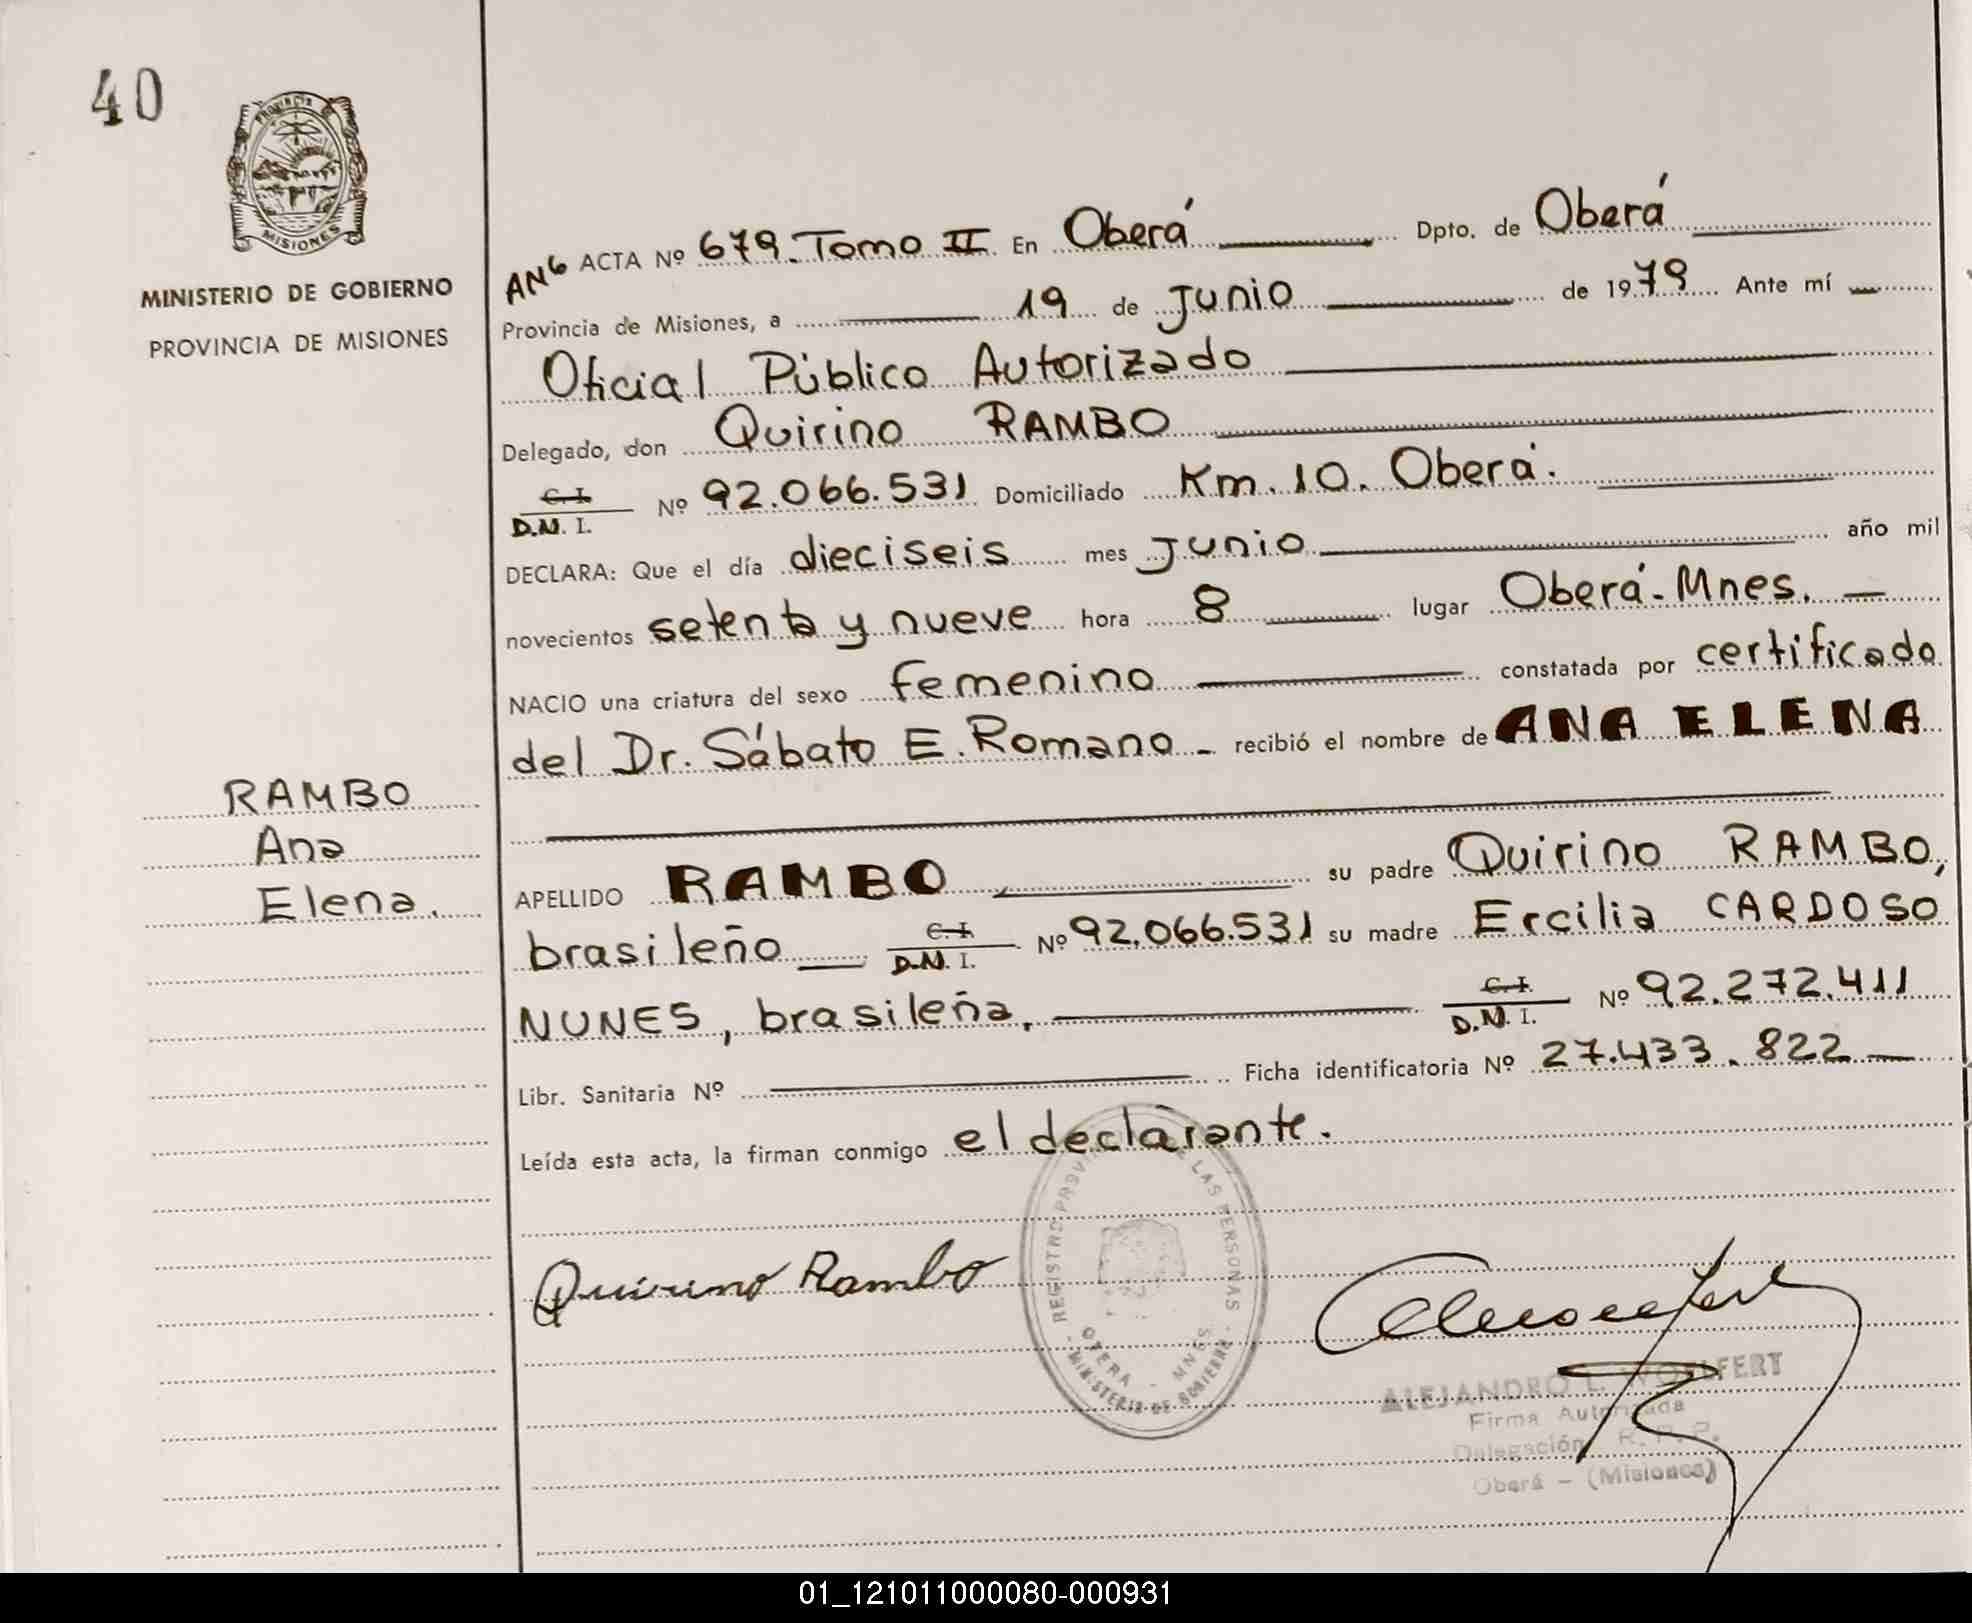 40
PROVINCIA
MISIONES
MINISTERIO DE GOBIERNO
PROVINCIA DE MISIONES
RAMBO
Ana
Elena.
AN6 ACTA Nº 679. Tomo II En Oberá Dpto. de Oberá
Provincia de Misiones, a 19 de Junio de 1979 Ante mí
Oficial Público Autorizado
Delegado, don Quirino RAMBO
C.I. D.N.I. Nº 92.066.531 Domiciliado Km. 10. Oberá.
DECLARA: Que el día dieciseis mes Junio año mil
novecientos setenta y nueve hora 8 lugar Oberá-Mnes.
NACIO una criatura del sexo femenino constatada por certificado
del Dr. Sábato E. Romano - recibió el nombre de ANA ELENA
APELLIDO RAMBO su padre Quirino RAMBO,
brasileño C.I. D.N.I. Nº 92.066.531 su madre Ercilia CARDOSO
NUNES, brasileña. C.I. D.N.I. Nº 92.272.411
Libr. Sanitaria Nº Ficha identificatoria Nº 27.433.822
Leída esta acta, la firman conmigo el declarante.
Quirino Rambo
REGISTRO PROVINCIAL DE LAS PERSONAS
OBERA - MNES
MINISTERIO DE GOBIERNO
ALEJANDRO L. WOELFERT
Firma Autorizada
Delegación R.P.P.
Oberá - (Misiones)
01_121011000080-000931